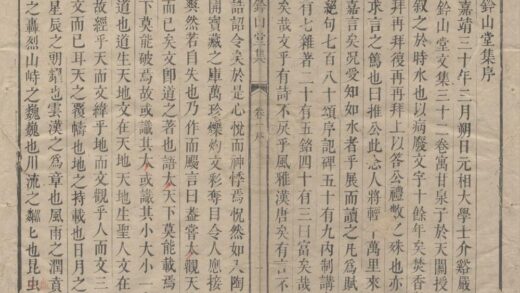 鈐山堂集序
嘉靖三十年三月朔日元相大學士介谿嚴
鈐山堂文集三十二卷寓甘泉子於天關授
敘之於時水也以病廢文字十餘年矣焚香
再拜拜後再再拜上以答公禮敬之殊也亦
求言之篤也曰推公此念人將輕千萬里來
嘉言矣況愛知如水者乎展而讀之凡為賦
絕句七百八十頌序記碑五十有九內制講
有七雜著二十有五銘四十有三曰富矣哉
矣哉文乎有詩不足乎風雅漢唐矣有言不
鈐山堂集 卷 序
誥詔令矣於是心悅而神悸焉怳然如入陶
開寶藏之庫萬珍爍灼文彩奪目令人應接
爽然若自失也乃作而颺言曰盍嘗大觀天
而已矣文即道之著也語大天下莫能載焉
下莫能破焉故或識其大或識其小大小一
道也道生天地文在天地天地生聖人文在
故經乎天而文緯乎地而文觀乎人而文
文而已耳天之覆幬也地之持載也日月之
星辰之朝耀也雲漢之為章也風雨之潤賁
之轟烈山峙之巍巍也川流之也昆虫